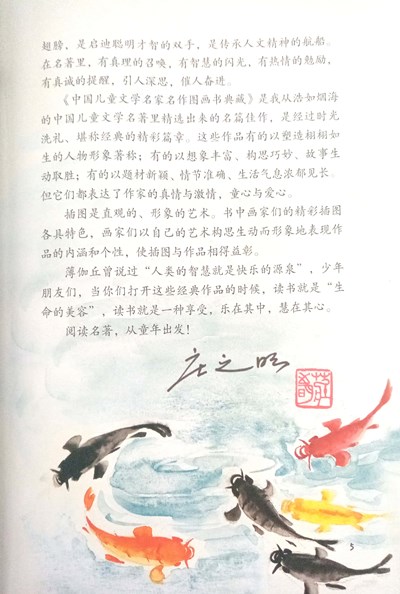 翅膀，是启迪聪明才智的双手，是传承人文精神的航船。
在名著里，有真理的召唤，有智慧的闪光，有热情的勉励，
有真诚的提醒，引人深思，催人奋进。
《中国儿童文学名家名作图画书典藏》是我从浩如烟海
的中国儿童文学名著里精选出来的名篇佳作，是经过时光
洗礼、堪称经典的精彩篇章。这些作品有的以塑造栩栩如
生的人物形象著称；有的以想象丰富、构思巧妙、故事生
动取胜；有的以题材新颖、情节准确、生活气息浓郁见长。
但它们都表达了作家的真情与激情，童心与爱心。
插图是直观的、形象的艺术。书中画家们的精彩插图
各具特色，画家们以自己的艺术构思生动而形象地表现作
品的内涵和个性，使插图与作品相得益彰。
薄伽丘曾说过“人类的智慧就是快乐的源泉”，少年
朋友们，当你们打开这些经典作品的时候，读书就是“生
命的美容”，读书就是一种享受，乐在其中，慧在其心。
阅读名著，从童年出发！
庄之明
5